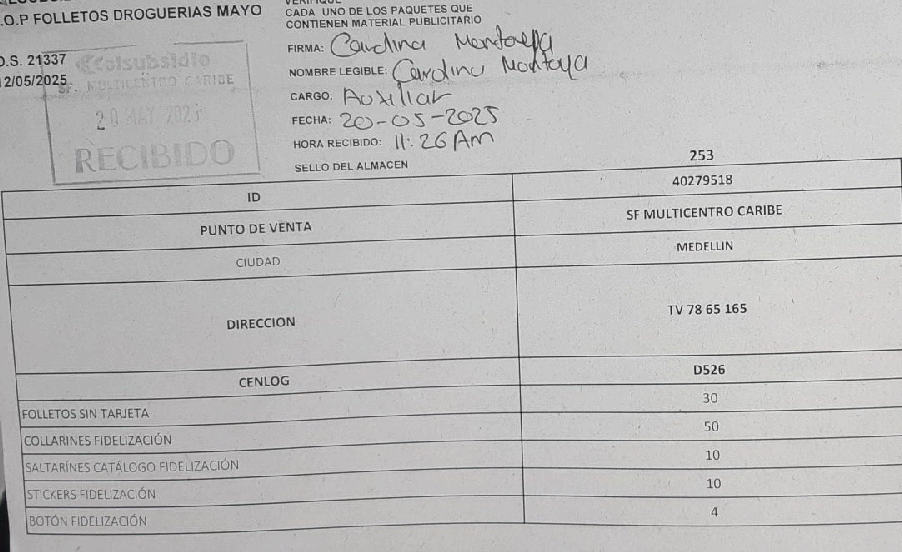 .O.P FOLLETOS DROGUERIAS MAYO
CADA UNO DE LOS PAQUETES QUE
CONTIENEN MATERIAL PUBLICITARIO
FIRMA: Carolina Montoya
O.S. 21337
NOMBRE LEGIBLE: Carolina Montoya
12/05/2025.
Colsubsidio
SF. MULTICENTRO CARIBE
20 MAY 2025
RECIBIDO
CARGO: Auxiliar
FECHA: 20-05-2025
HORA RECIBIDO: 11:26 Am
SELLO DEL ALMACEN
253
ID 40279518
PUNTO DE VENTA SF MULTICENTRO CARIBE
CIUDAD MEDELLIN
DIRECCION TV 78 65 165
CENLOG D526
FOLLETOS SIN TARJETA 30
COLLARINES FIDELIZACIÓN 50
SALTARÍNES CATÁLOGO FIDELIZACIÓN 10
STICKERS FIDELIZACIÓN 10
BOTÓN FIDELIZACIÓN 4